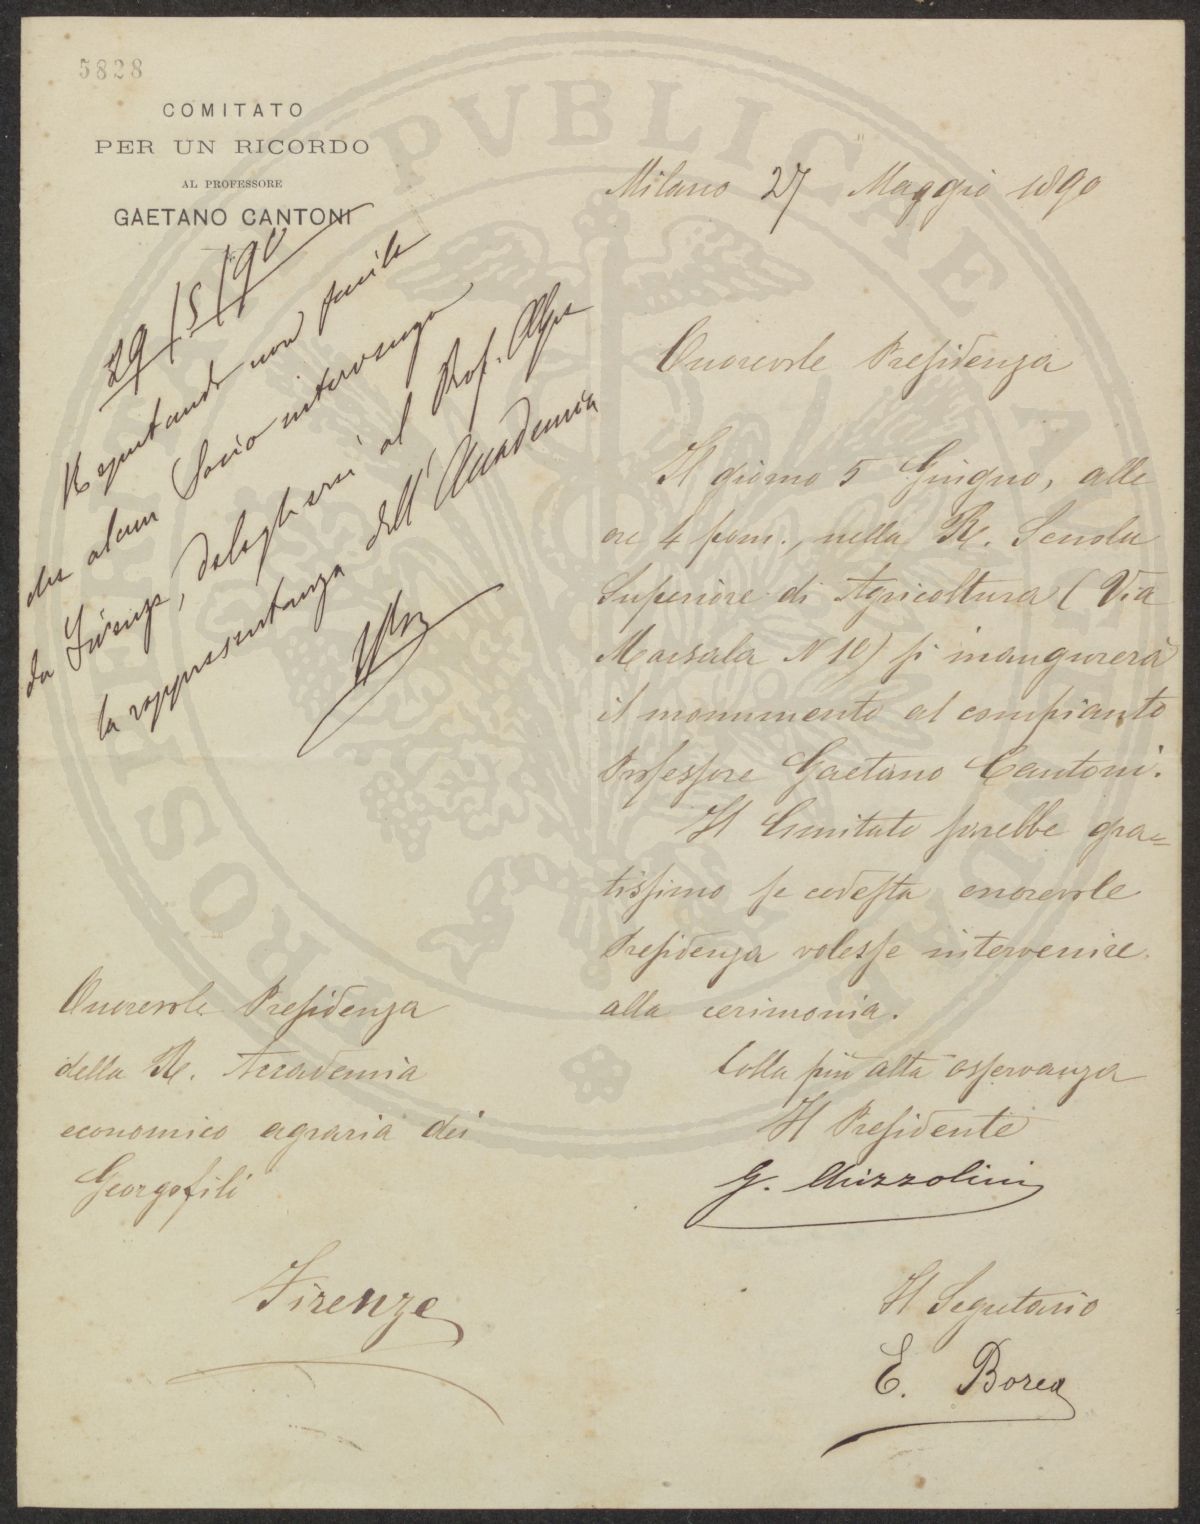 5828
COMITATO
PER UN RICORDO
AL PROFESSORE
GAETANO CANTONI
29/5/90
Reputando non facile
che alcun Socio intervenga
da Firenze, delegherei al Prof.
la rappresentanza dell'Accademia
Milano 27 Maggio 1890
Onorevole Presidenza
Il giorno 5 Giugno, alle
ore 4 pom., nella R. Scuola
Superiore di Agricoltura (Via
Marsala N 10) si inaugurerà
il monumento al compianto
Professore Gaetano Cantoni.
Il Comitato sarebbe gra=
tissimo se codesta onorevole
Presidenza volesse intervenire
alla cerimonia.
Colla più alta osservanza
Il Presidente
G. Chizzolini
Il Segretario
E. Borea
Onorevole Presidenza
della R. Accademia
economico agraria dei
Georgofili
Firenze
PVBLICAE